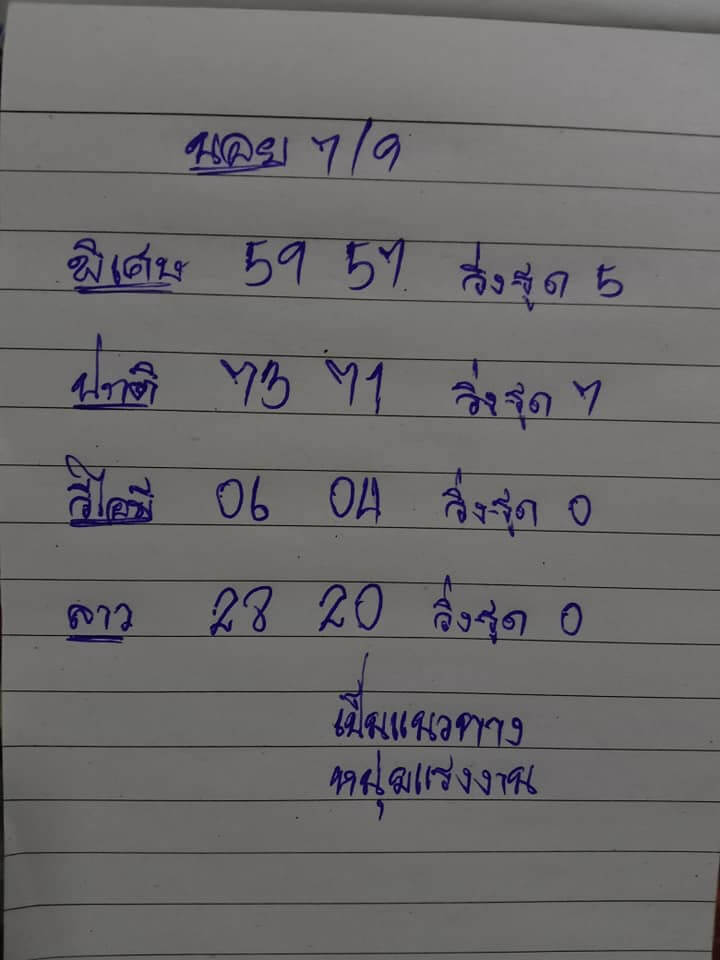 นอย 7/9
พิเศษ 59 57 วิ่งรูด 5
ปกติ 73 71 วิ่งรูด 7
วีไอพี 06 04 วิ่งรูด 0
ลาว 28 20 วิ่งรูด 0
เป็นแนวทาง
หนุ่มแรงงาน